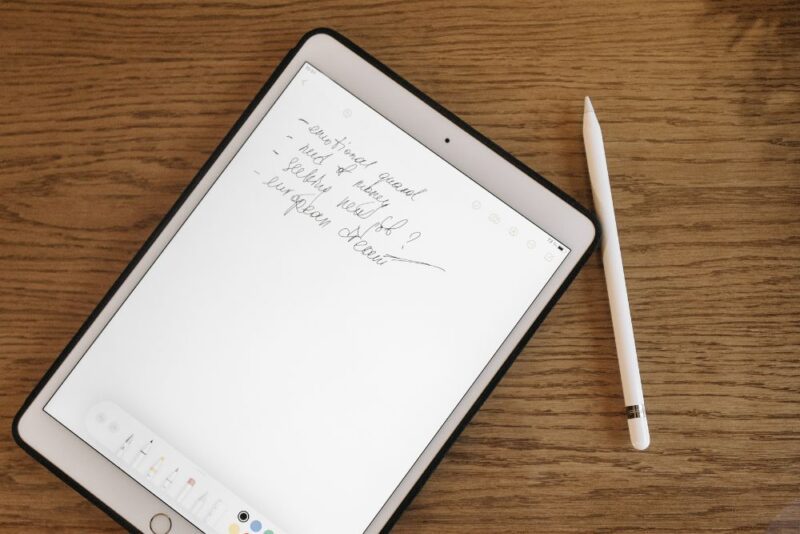 - emotional quard
- need of money
- seeking new job?
- european dream